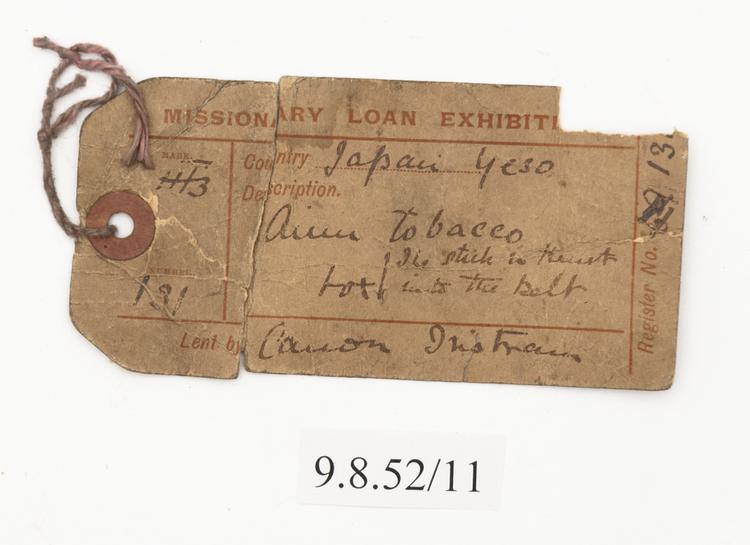 MISSIONARY LOAN EXHIBITI
MARK.
Country Japan Yeso
Description.
Ainu Tobacco
box
The stick is thrust
into the Belt
NUMBER.
131
Lent by Canon Tristram
Register No.
13
9.8.52/11